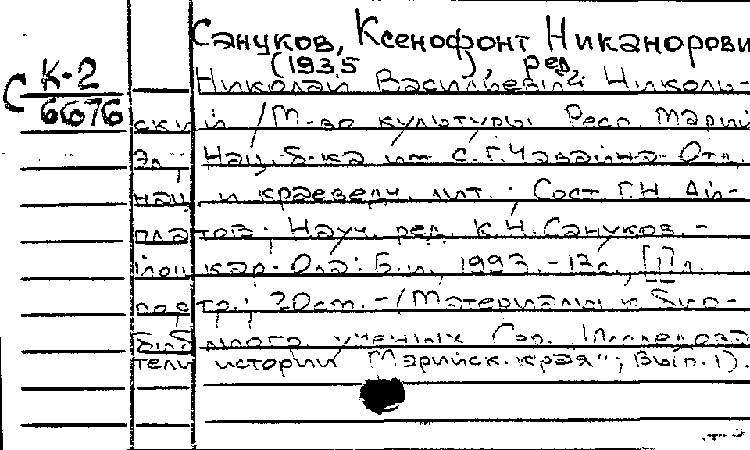 Сануков, Ксенофонт Никанорови
(1935 , ред.
К-2
С
6676
Николай Васильевич Николь-
ский /М-во культуры Респ. Марий
Эл; Нац. б-ка им. С.Г.Чавайна. Отд.
нац. и краеведч. лит.; Сост. Г.Н. Ай-
платов; Науч. ред. К.Н.Сануков. -
Йошкар-Ола: Б.и., 1993. -12с., [1]л.
портр.; 20см. -(Материалы к био-
библиогр. ученых. Сер. Исследова
тели истории Марийск. края"; Вып.1).